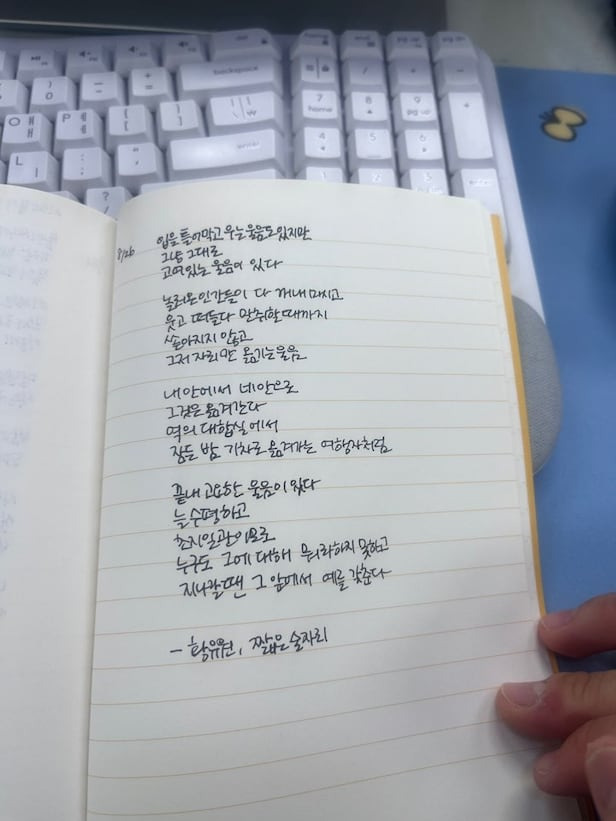 backspace
home
end
pg up
pg dn
7 home
8
9 pg up
4
5
6
enter
O ㅐ
P ㅔ
L ㅣ
8/26
입을 틀어막고 우는 울음도 있지만
그냥 그대로
고여 있는 울음이 있다
놀러온 인간들이 다 꺼내 마시고
웃고 떠들다 만취할 때까지
쏟아지지 않고
그저 자리만 옮기는 울음
내 안에서 네 안으로
그것은 옮겨간다
역의 대합실에서
잠든 밤 기차로 옮겨가는 여행자처럼
끝내 고요한 울음이 있다
늘 수평하고
초지일관이므로
누구도 그에 대해 뭐라하지 못하고
지나갈 땐 그 앞에서 예를 갖춘다
- 황유원, 짧은 술자리